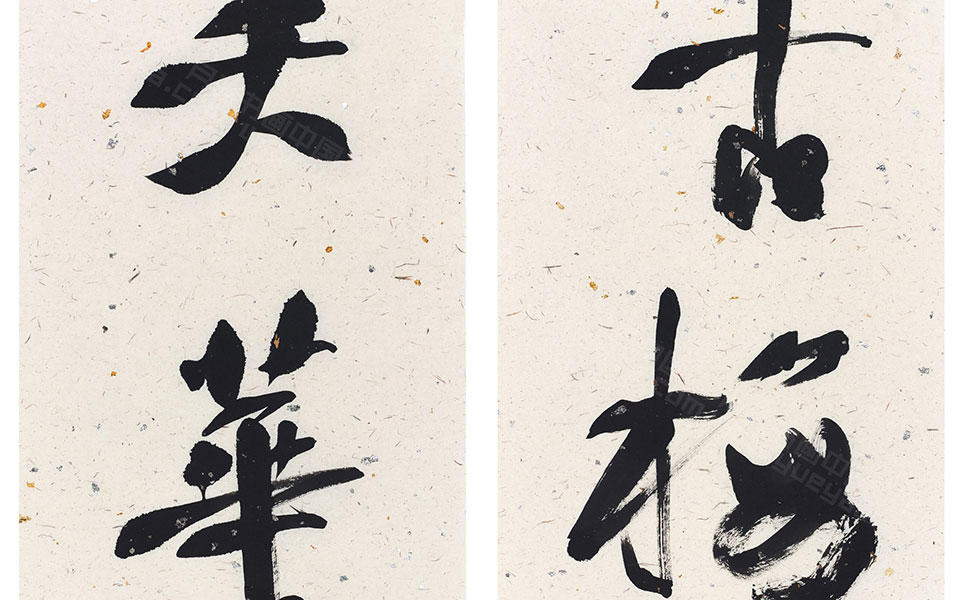 古梅
天華